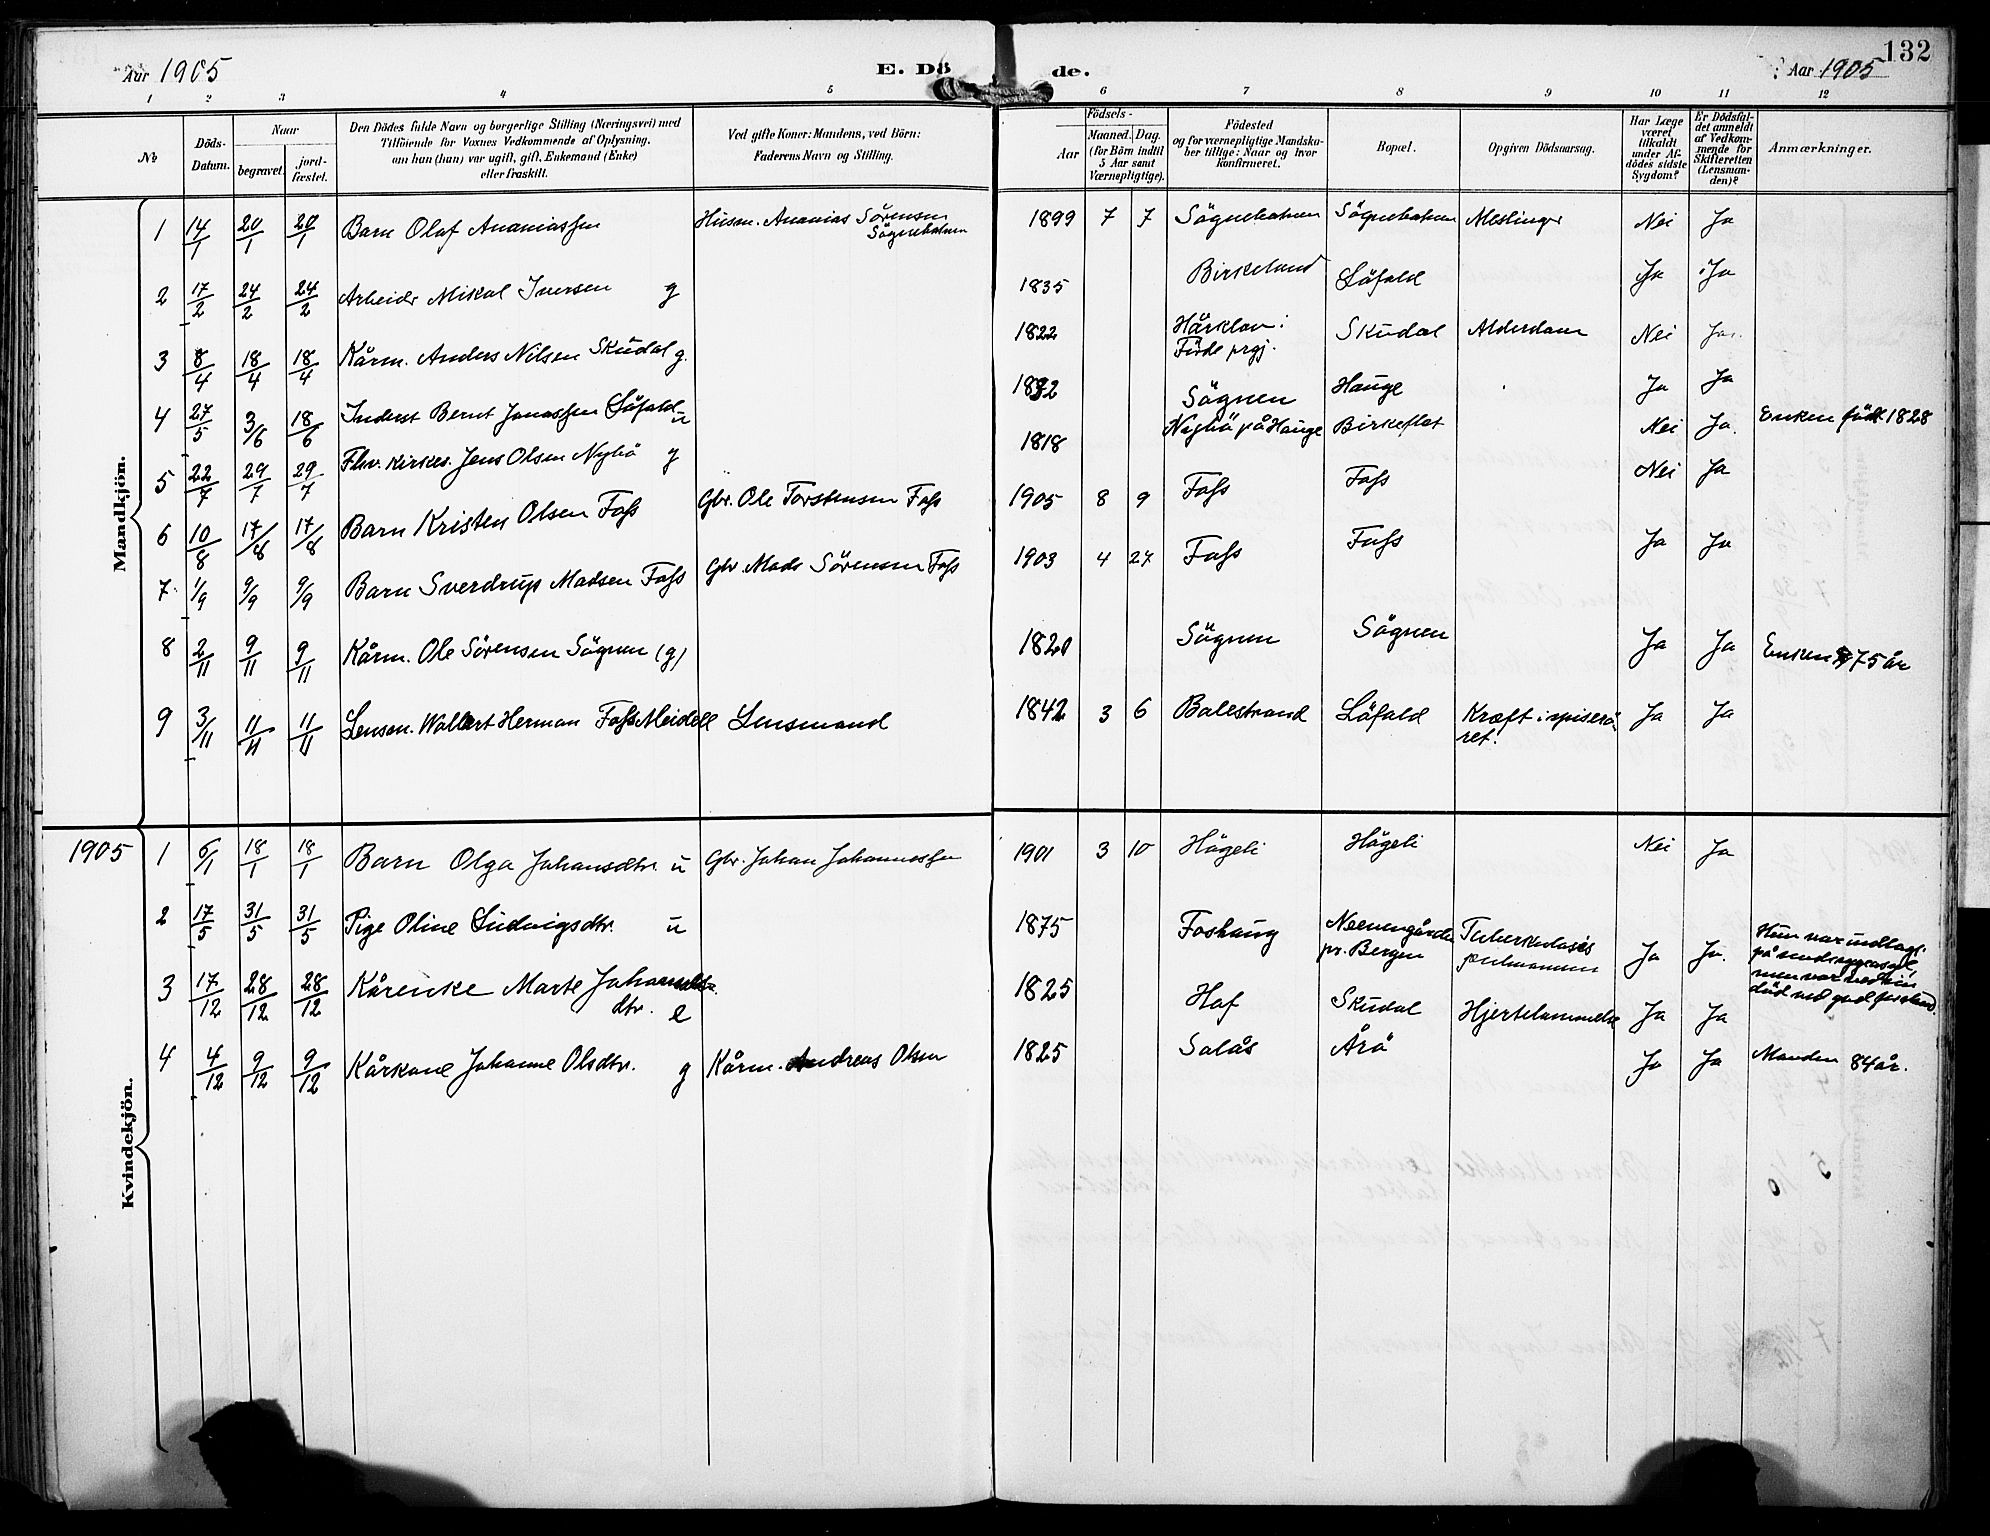 Aar 1905
E. Dö de.
Aar 1905
132
1 2 3 4 5 6 7 8 9 10 11 12
No
Döds-Datum.
Naar
begravet.
jord-fæstet.
Den Dödes fulde Navn og borgerlige Stilling (Næringsvei) med
Tilföiende for Voxnes Vedkommende af Oplysning,
om han (hun) var ugift, gift, Enkemand (Enke)
eller fraskilt.
Ved gifte Koner: Mandens, ved Börn:
Faderens Navn og Stilling.
Födsels-
Aar
Maaned. Dag.
(for Börn indtil
5 Aar samt
Værnepligtige).
Födested
og for værnepligtige Mandska-
ber tillige: Naar og hvor
konfirmeret.
Bopæl.
Opgiven Dödsaarsag.
Har Læge
været
tilkaldt
under Af-
dödes sidste
Sygdom?
Er Dödsfal-
det anmeldt
af Vedkom-
mende for
Skifteretten
(Lensman-
den)?
Anmærkninger.
Mandkjön.
1 14/1 20/1 20/1 Barn Olaf Ananiassen Husm. Ananias Sörensen Sögnebotnen 1899 7 7 Sögnebotnen Sögnebotnen Meslinger Nei Ja
2 17/2 24/2 24/2 Arbeider Mikal Iversen g 1835 Birkeland Löfald Ja Ja
3 8/4 18/4 18/4 Kårm. Anders Nilsen Skudal g. 1822 Förde prgj. Skudal Alderdom Nei Ja.
4 27/5 3/6 18/6 Inderst Bernt Jonassen Löfald u 1832 Sögnen Hauge Ja Ja
5 22/7 29/7 29/7 Fhv. kirkes. Jens Olsen Nybö g 1818 Nybö på Hauge Birkeflot Nei Ja. Enken födt 1828
6 10/8 17/8 17/8 Barn Kristen Olsen Foss Gbr. Ole Torstensen Foss 1905 8 9 Foss Foss Nei Ja
7. 1/9 9/9 9/9 Barn Sverdrup Madsen Foss Gbr. Mads Sörensen Foss 1903 4 27 Foss Foss Ja Ja
8 2/11 9/11 9/11 Kårm. Ole Sörensen Sögnen (g) 1820 Sögnen Sögnen Ja Ja Enken 75 år
9 3/11 11/11 11/11 Lensm. Wollert Herman Foss Meidell Lensmand 1842 3 6 Balestrand Löfald Kræft i spiserö-
ret. Ja Ja
Kvindekjön.
1905 1 6/1 18/1 18/1 Barn Olga Johansdtr. u Gbr. Johan Johannessen 1901 3 10 Hågeli Hågeli Nei Ja
2 17/5 31/5 31/5 Pige Oline Ludvigsdtr. u 1875 Foshaug pr. Bergen Tuberkulosis
pulmonum Ja Ja. Hun var indlagt
på
men var ved sin
död ved god
3 17/12 28/12 28/12 Kårenke Marte
dtr. e 1825 Hof Skudal Hjertelammelse Ja Ja
4 4/12 9/12 9/12 Kårkone Johanne Olsdtr. g Kårm. Andreas Olsen 1825 Solås Årö Ja Ja Manden 84 år.